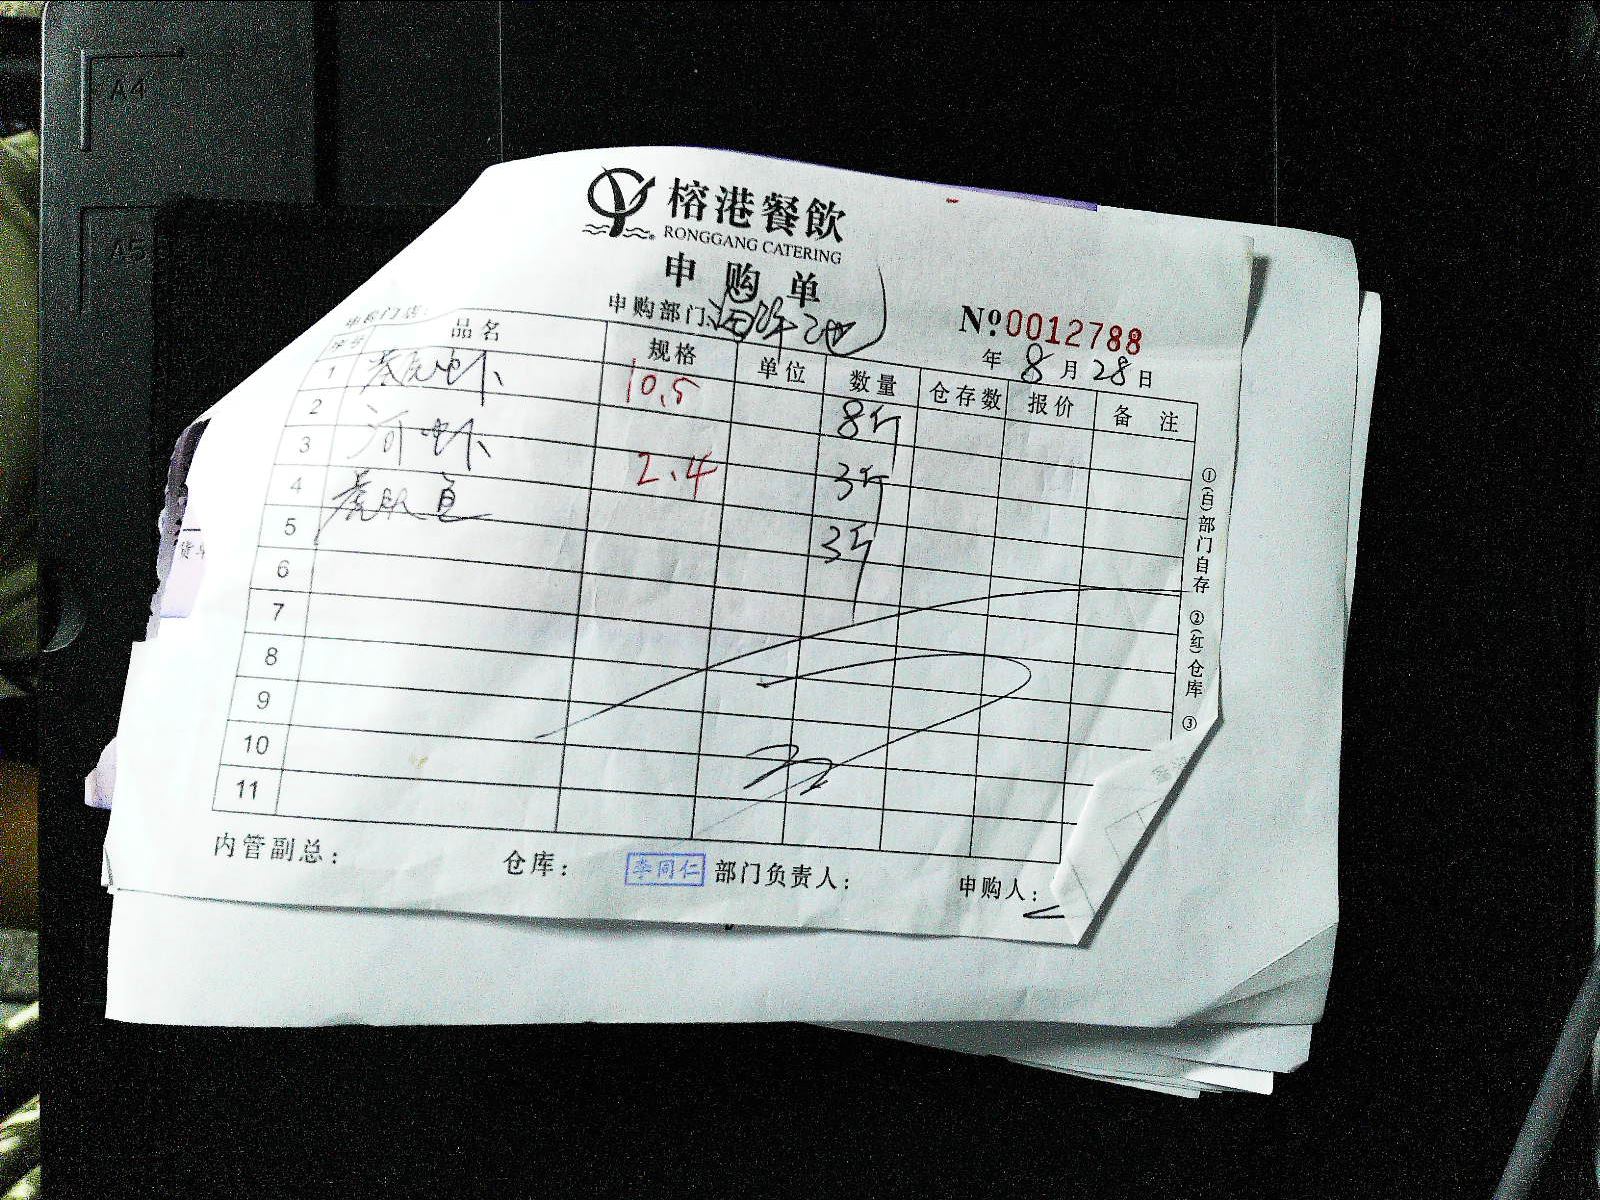 A4
A5
榕港餐飲
RONGGANG CATERING
申购单
申购门店:
申购部门:
№0012788
年 8 月 28 日
序号 品名 规格 单位 数量 仓存数 报价 备 注
1 虾 10.5 8斤
2
3 河虾 2.4 3斤
4
5 3斤
6
7
8
9
10
11
①(白)部门自存 ②(红)仓库 ③
内管副总: 仓库: 李同仁 部门负责人: 申购人: